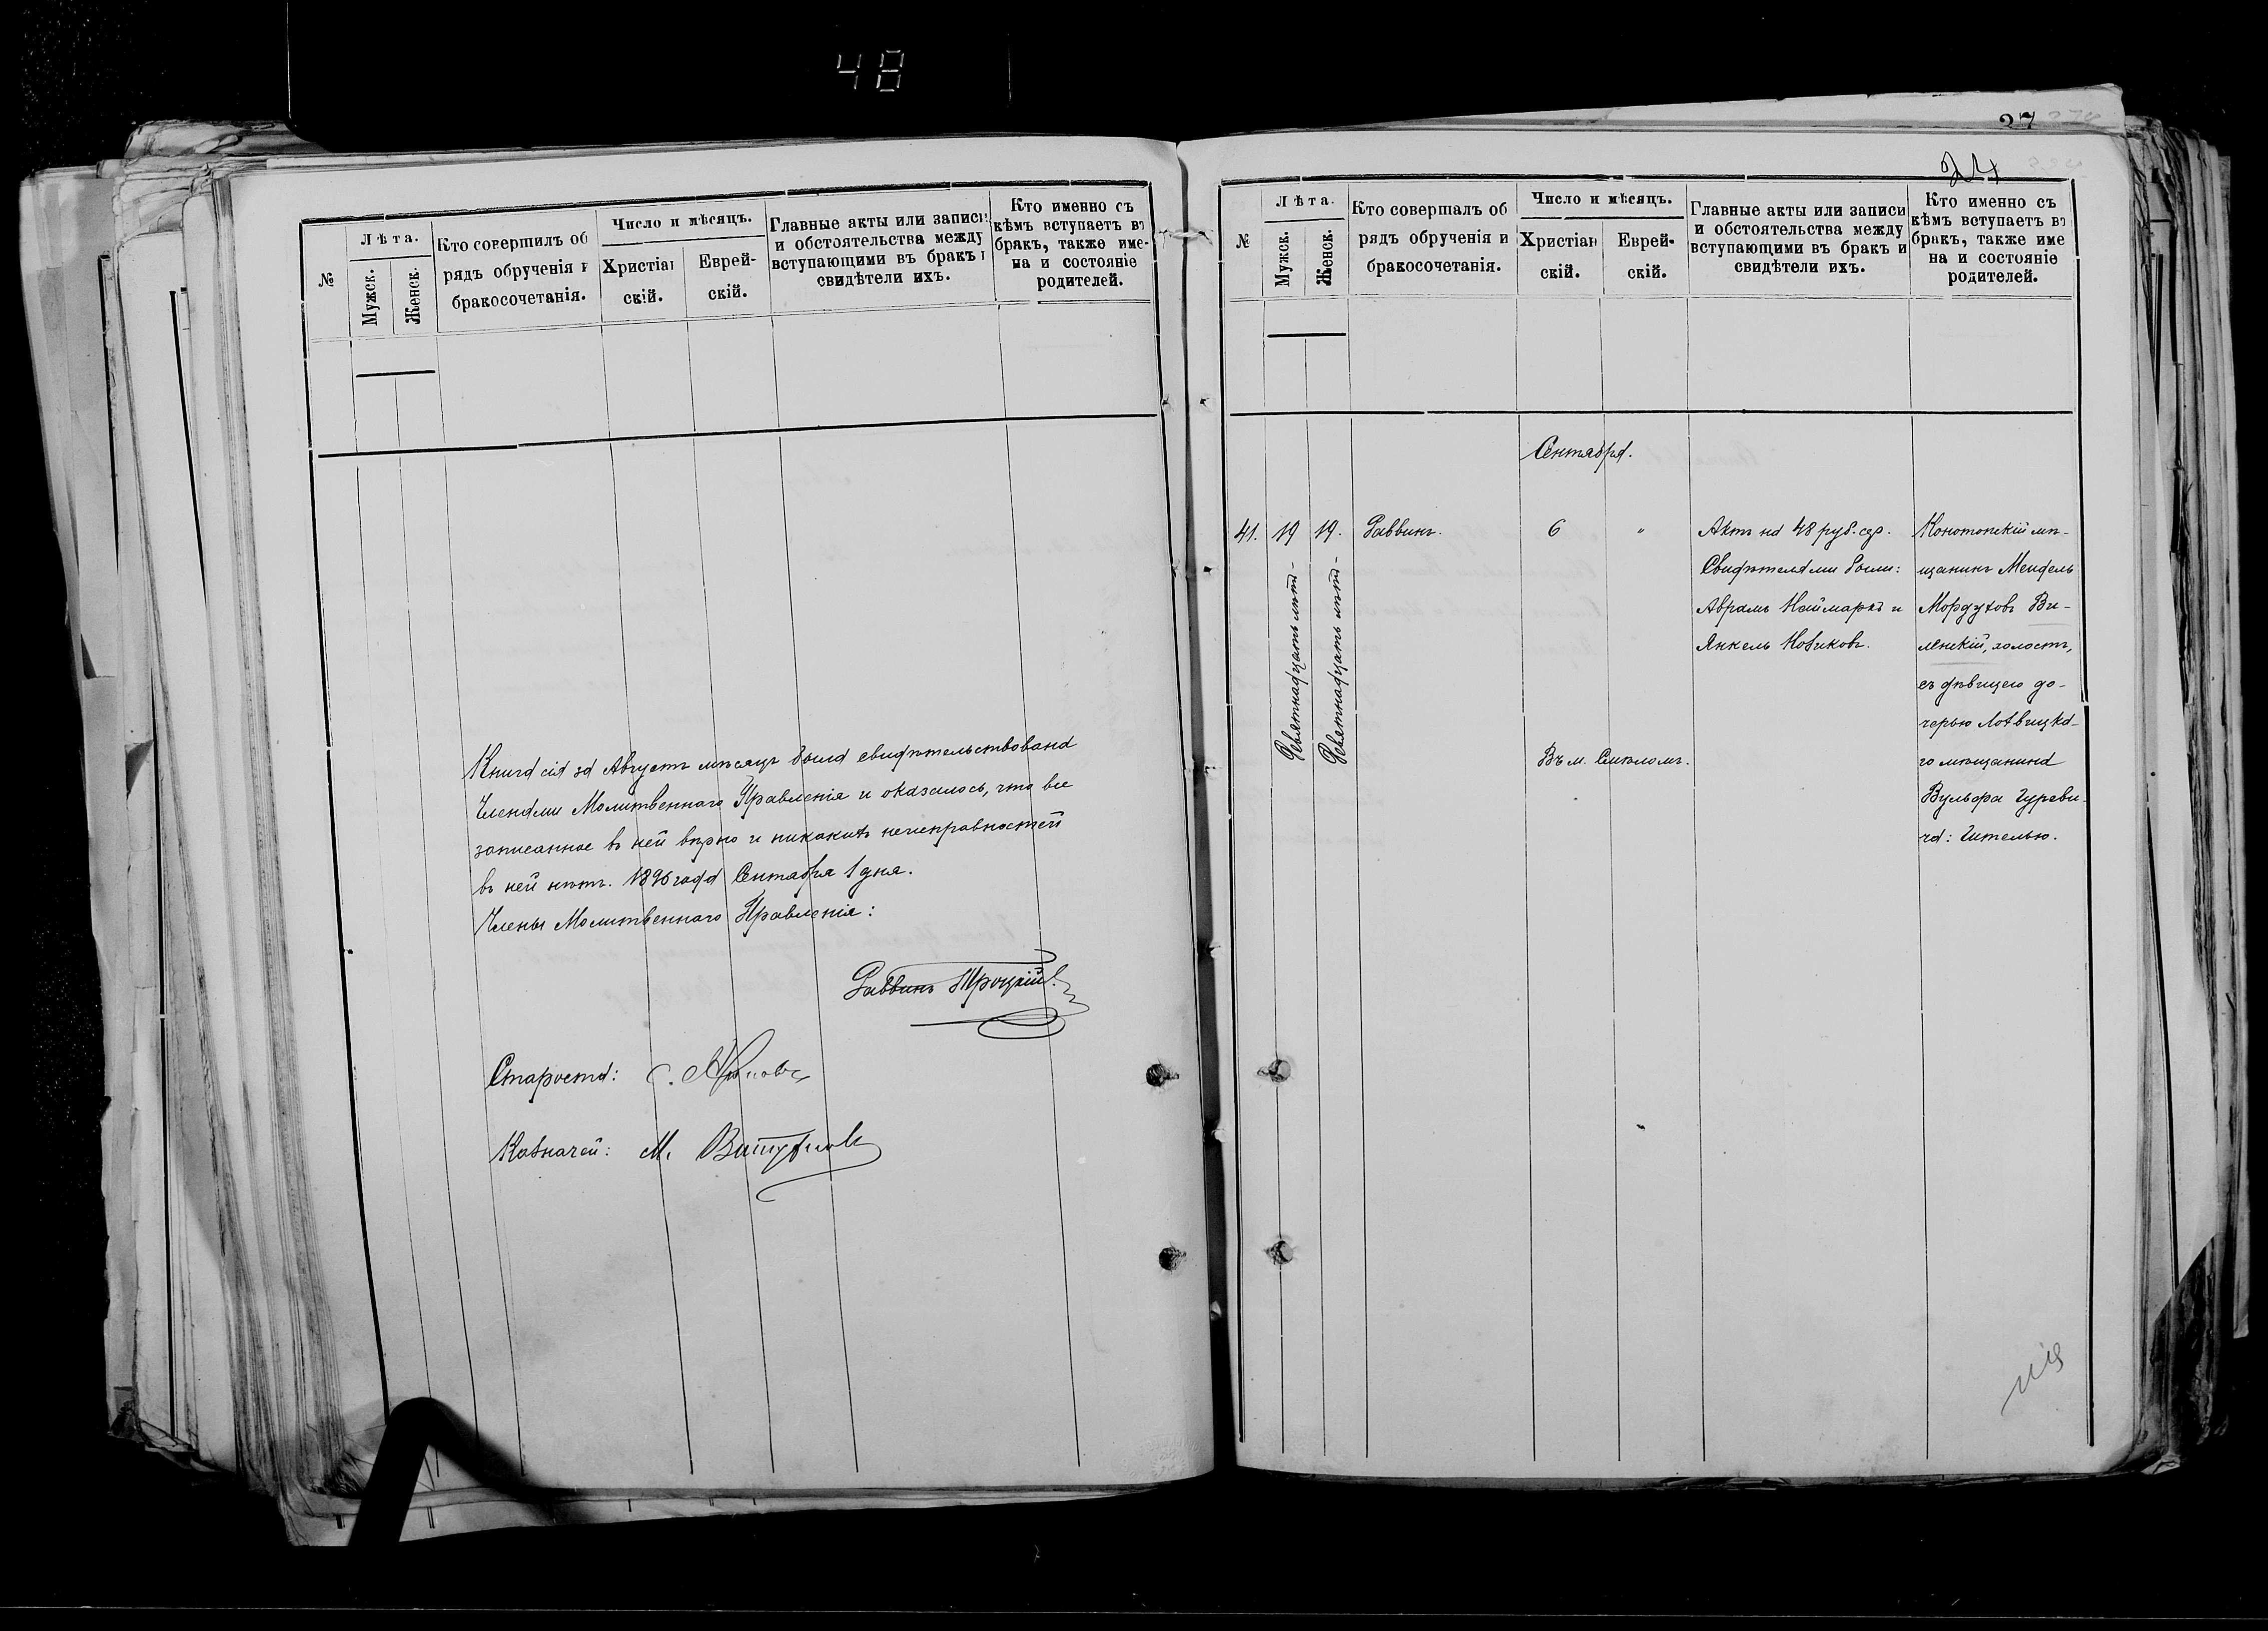 48
№
Лѣта.
Мужск.
Женск.
Кто совершилъ об
рядъ обрученія и
бракосочетанія.
Число и мѣсяцъ.
Христіан
скій.
Еврей-
скій.
Главные акты или записи
и обстоятельства между
вступающими въ бракъ и
свидѣтели ихъ.
Кто именно съ
кѣмъ вступаетъ въ
бракъ, также име-
на и состояніе
родителей.
Книга сія за Августъ мѣсяцъ была свидѣтельствована
Членами Молитвеннаго Правленія и оказалось, что все
записанное въ ней вѣрно и никакихъ неисправностей
въ ней нѣтъ. 1896 года Сентября 1 дня.
Члены Молитвеннаго Правленія:
Раввинъ Троцкій
Староста:
Казначей: М.
27
24
№
Лѣта.
Мужск.
Женск.
Кто совершалъ об
рядъ обрученія и
бракосочетанія.
Число и мѣсяцъ.
Христіан
скій.
Еврей-
скій.
Главные акты или записи
и обстоятельства между
вступающими въ бракъ и
свидѣтели ихъ.
Кто именно съ
кѣмъ вступаетъ въ
бракъ, также име
на и состояніе
родителей.
Сентября.
41.
19
Девятнадцать лѣтъ
19.
Девятнадцать лѣтъ
Раввинъ.
6
"
Въ м. Смѣломъ.
Актъ на 48 руб. сер.
Свидѣтелями были:
Абрамъ Наймаркъ и
Янкель Новиковъ.
Конотопскій мѣ-
щанинъ Мендель
Мордуховъ Ви-
ленскій, холостъ,
съ дѣвицею до-
черью Лохвицка-
го мѣщанина
Вульфа Гуреви-
ча: Гителью.